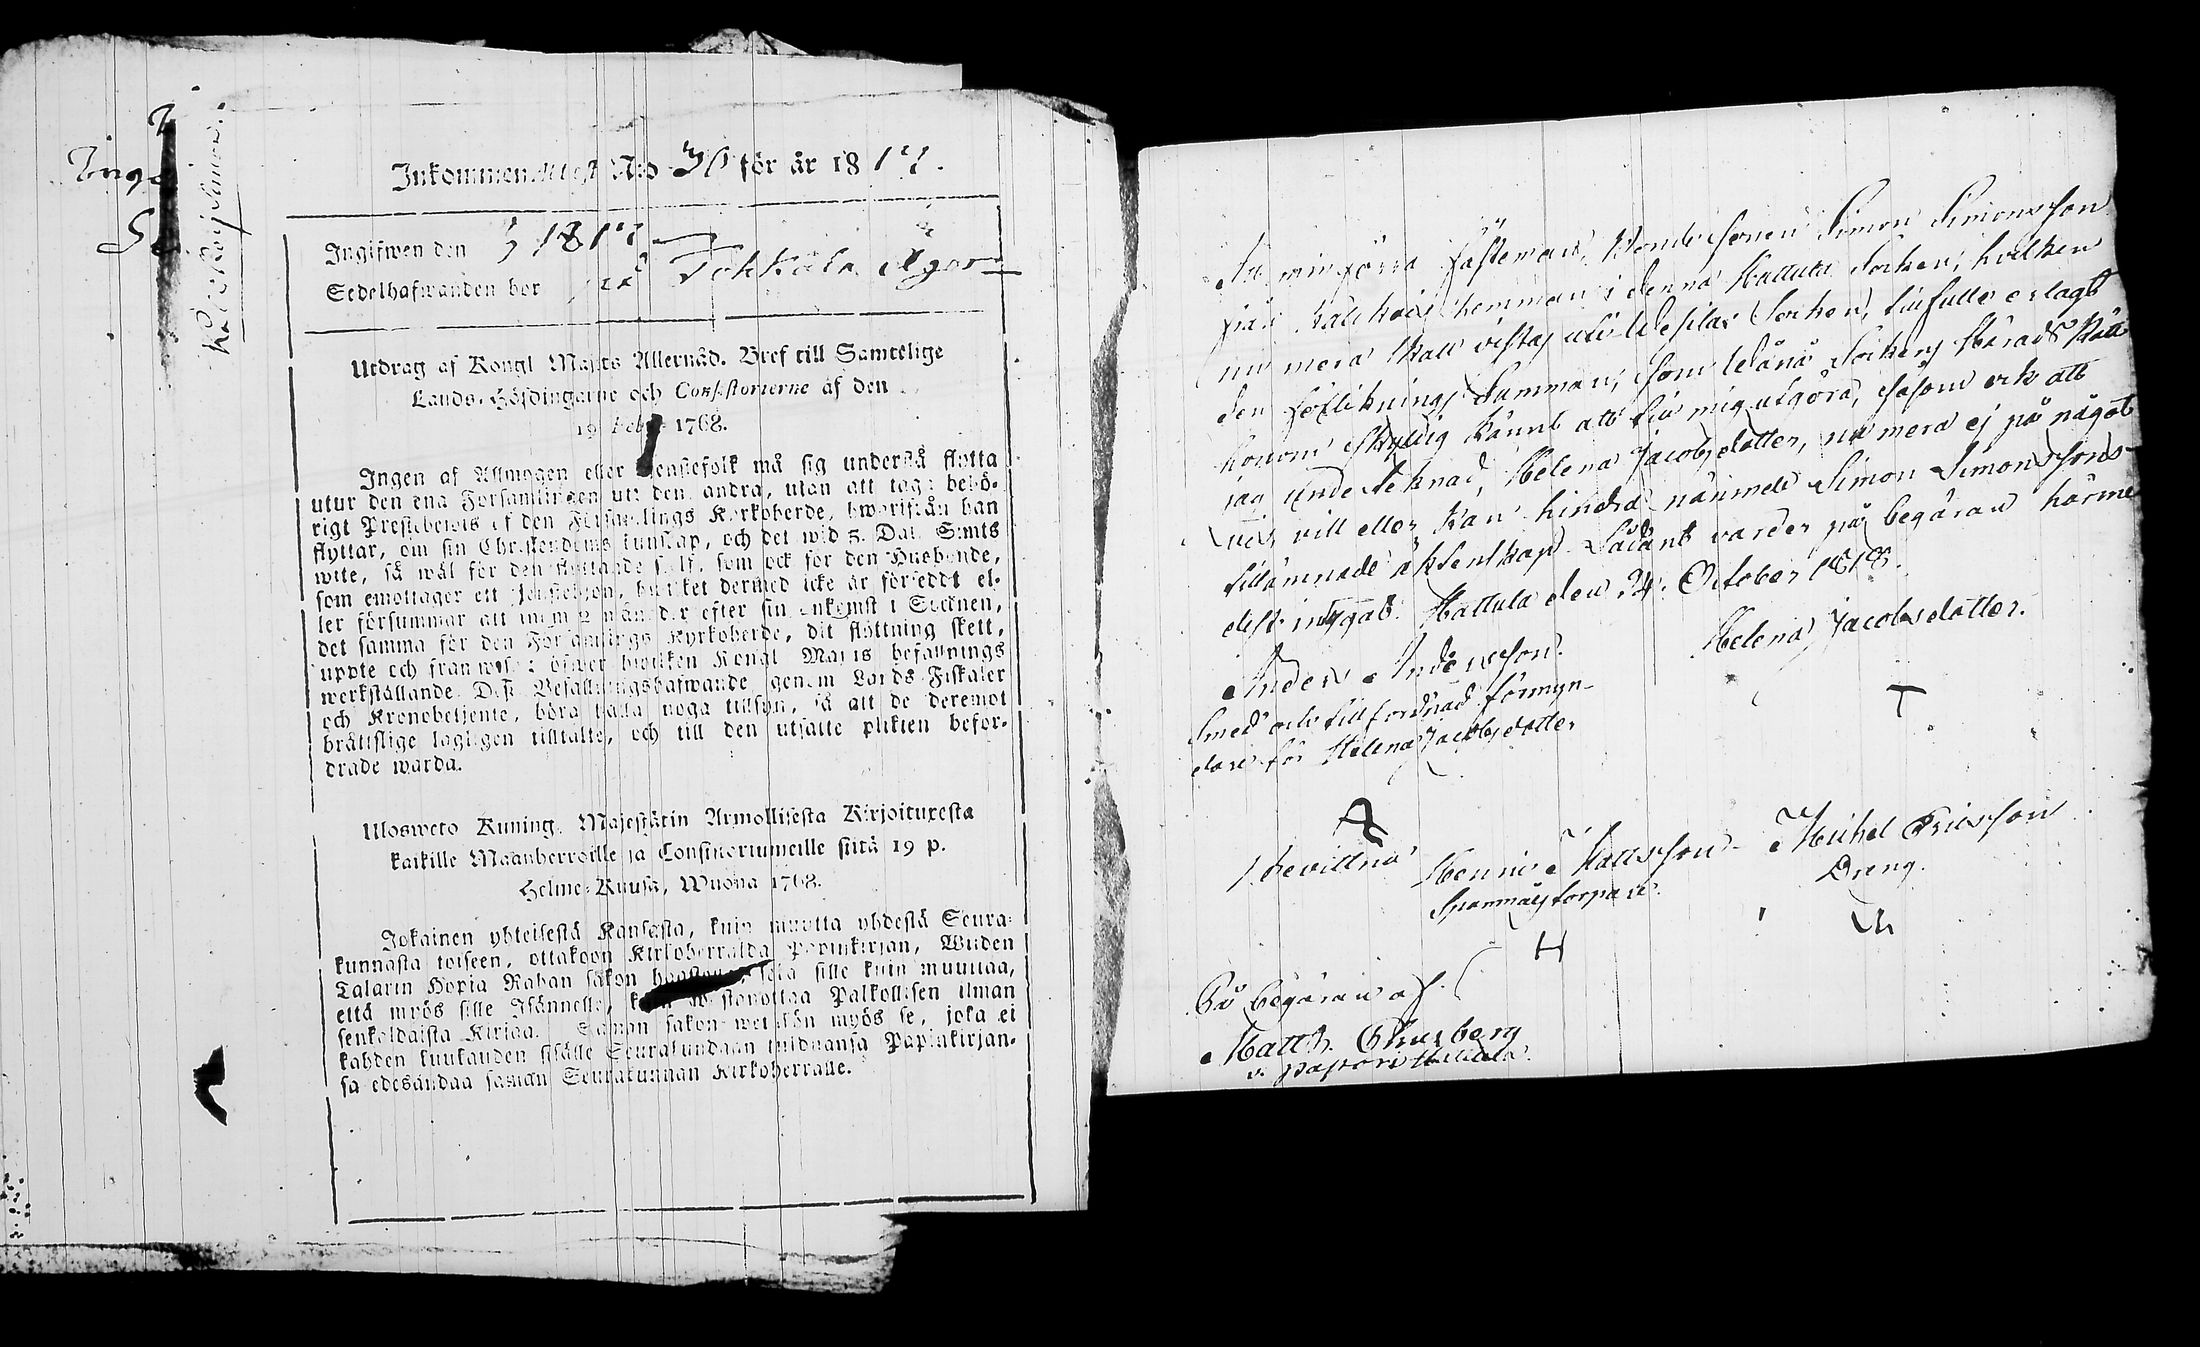 Inge
Inkommen attest N:o 30 för år 1817.
Ingifwen den 1817
Sedelhafwanden bor på Tokkala ägor
Utdrag af Kongl Majts Allernåd. Bref till Samtelige
Lands-Höfdingarne och Consistorierne af den
19 Febr. 1768.
Ingen af Allmogen eller Tjenstefolk må sig understå flytta
utur den ena Församlingen uti den andra, utan att taga behö-
rigt Prestebewis af den Församlings Kyrkoherde, hwarifrån han
flyttar, om sin Christendoms kunskap, och det wid 5. Dal. S:mts
wite, så wäl för den flyttande sjelf, som ock för den Husbonde,
som emottager ett Tjenstehjon, hwilket dermed icke är försedt el-
ler försummar att inom 2 månader efter sin ankomst i Socknen,
det samma för den Församlings Kyrkoherde, dit flyttning skett,
uppte och framwisa: öfwer hwilken Kongl Maj:ts befallnings
werkställande Dess Befallningshafwande genom Lands-Fiskaler
och Kronobetjente, böra hålla noga tillsyn, så att de deremot
bråttslige lagligen tilltalte, och till den utsatte plikten befor-
drade warda.
Ulosweto Kuning. Majestätin Armollisesta Kirjoituxesta
kaikille Maanherroille ja Consistoriumeille siitä 19 p.
Helme-Kuusa, Wuonna 1768.
Jokainen yhteisestä Kansasta, kuin muutta yhdestä Seura-
kunnasta toiseen, ottakoon Kirkoherralda Papinkirjan, Wiiden
Talarin Hopia Rahan sakon haastolla, sekä sille kuin muuttaa,
että myös sille Isännelle, kuin wastanottaa Palkollisen ilman
senkaldaista Kirjaa. Saman sakon wetäkön myös se, joka ei
kahden kuukauden sisälle Seurakundaan tulduansa Papinkirjan-
sa edesandaa saman Seurakunnan Kirkoherralle.
At min förra fästeman, Bondesonen Simon Simonsson
från hemman i denna Hattula Socken, hvilken
nu mera skall vistas uti Vesilax Socken, tillfullo erlagt
den förliknings Summan, som Vånå Sockens HäradsRätt
honom skyldig kännt att till mig utgöra, såsom ock att
jag undertecknad, Helena Jacobsdotter, nu mera ej på något
vis vill eller kan hindra nämnde Simon Simonssons
tillämnade äktenskap. Sådant varder på begäran härme-
delst intygat. Hattula den 24. October 1818.
Helena Jacobsdotter.
Anders Andersson.
Smed och tillförordnad förmyn-
dare för Helena Jacobsdotter
Bevittna Henric Mattsson Michel Ericsson
torpare. Dreng.
H
På begäran af
Matth.
v. pastor i Hattula.